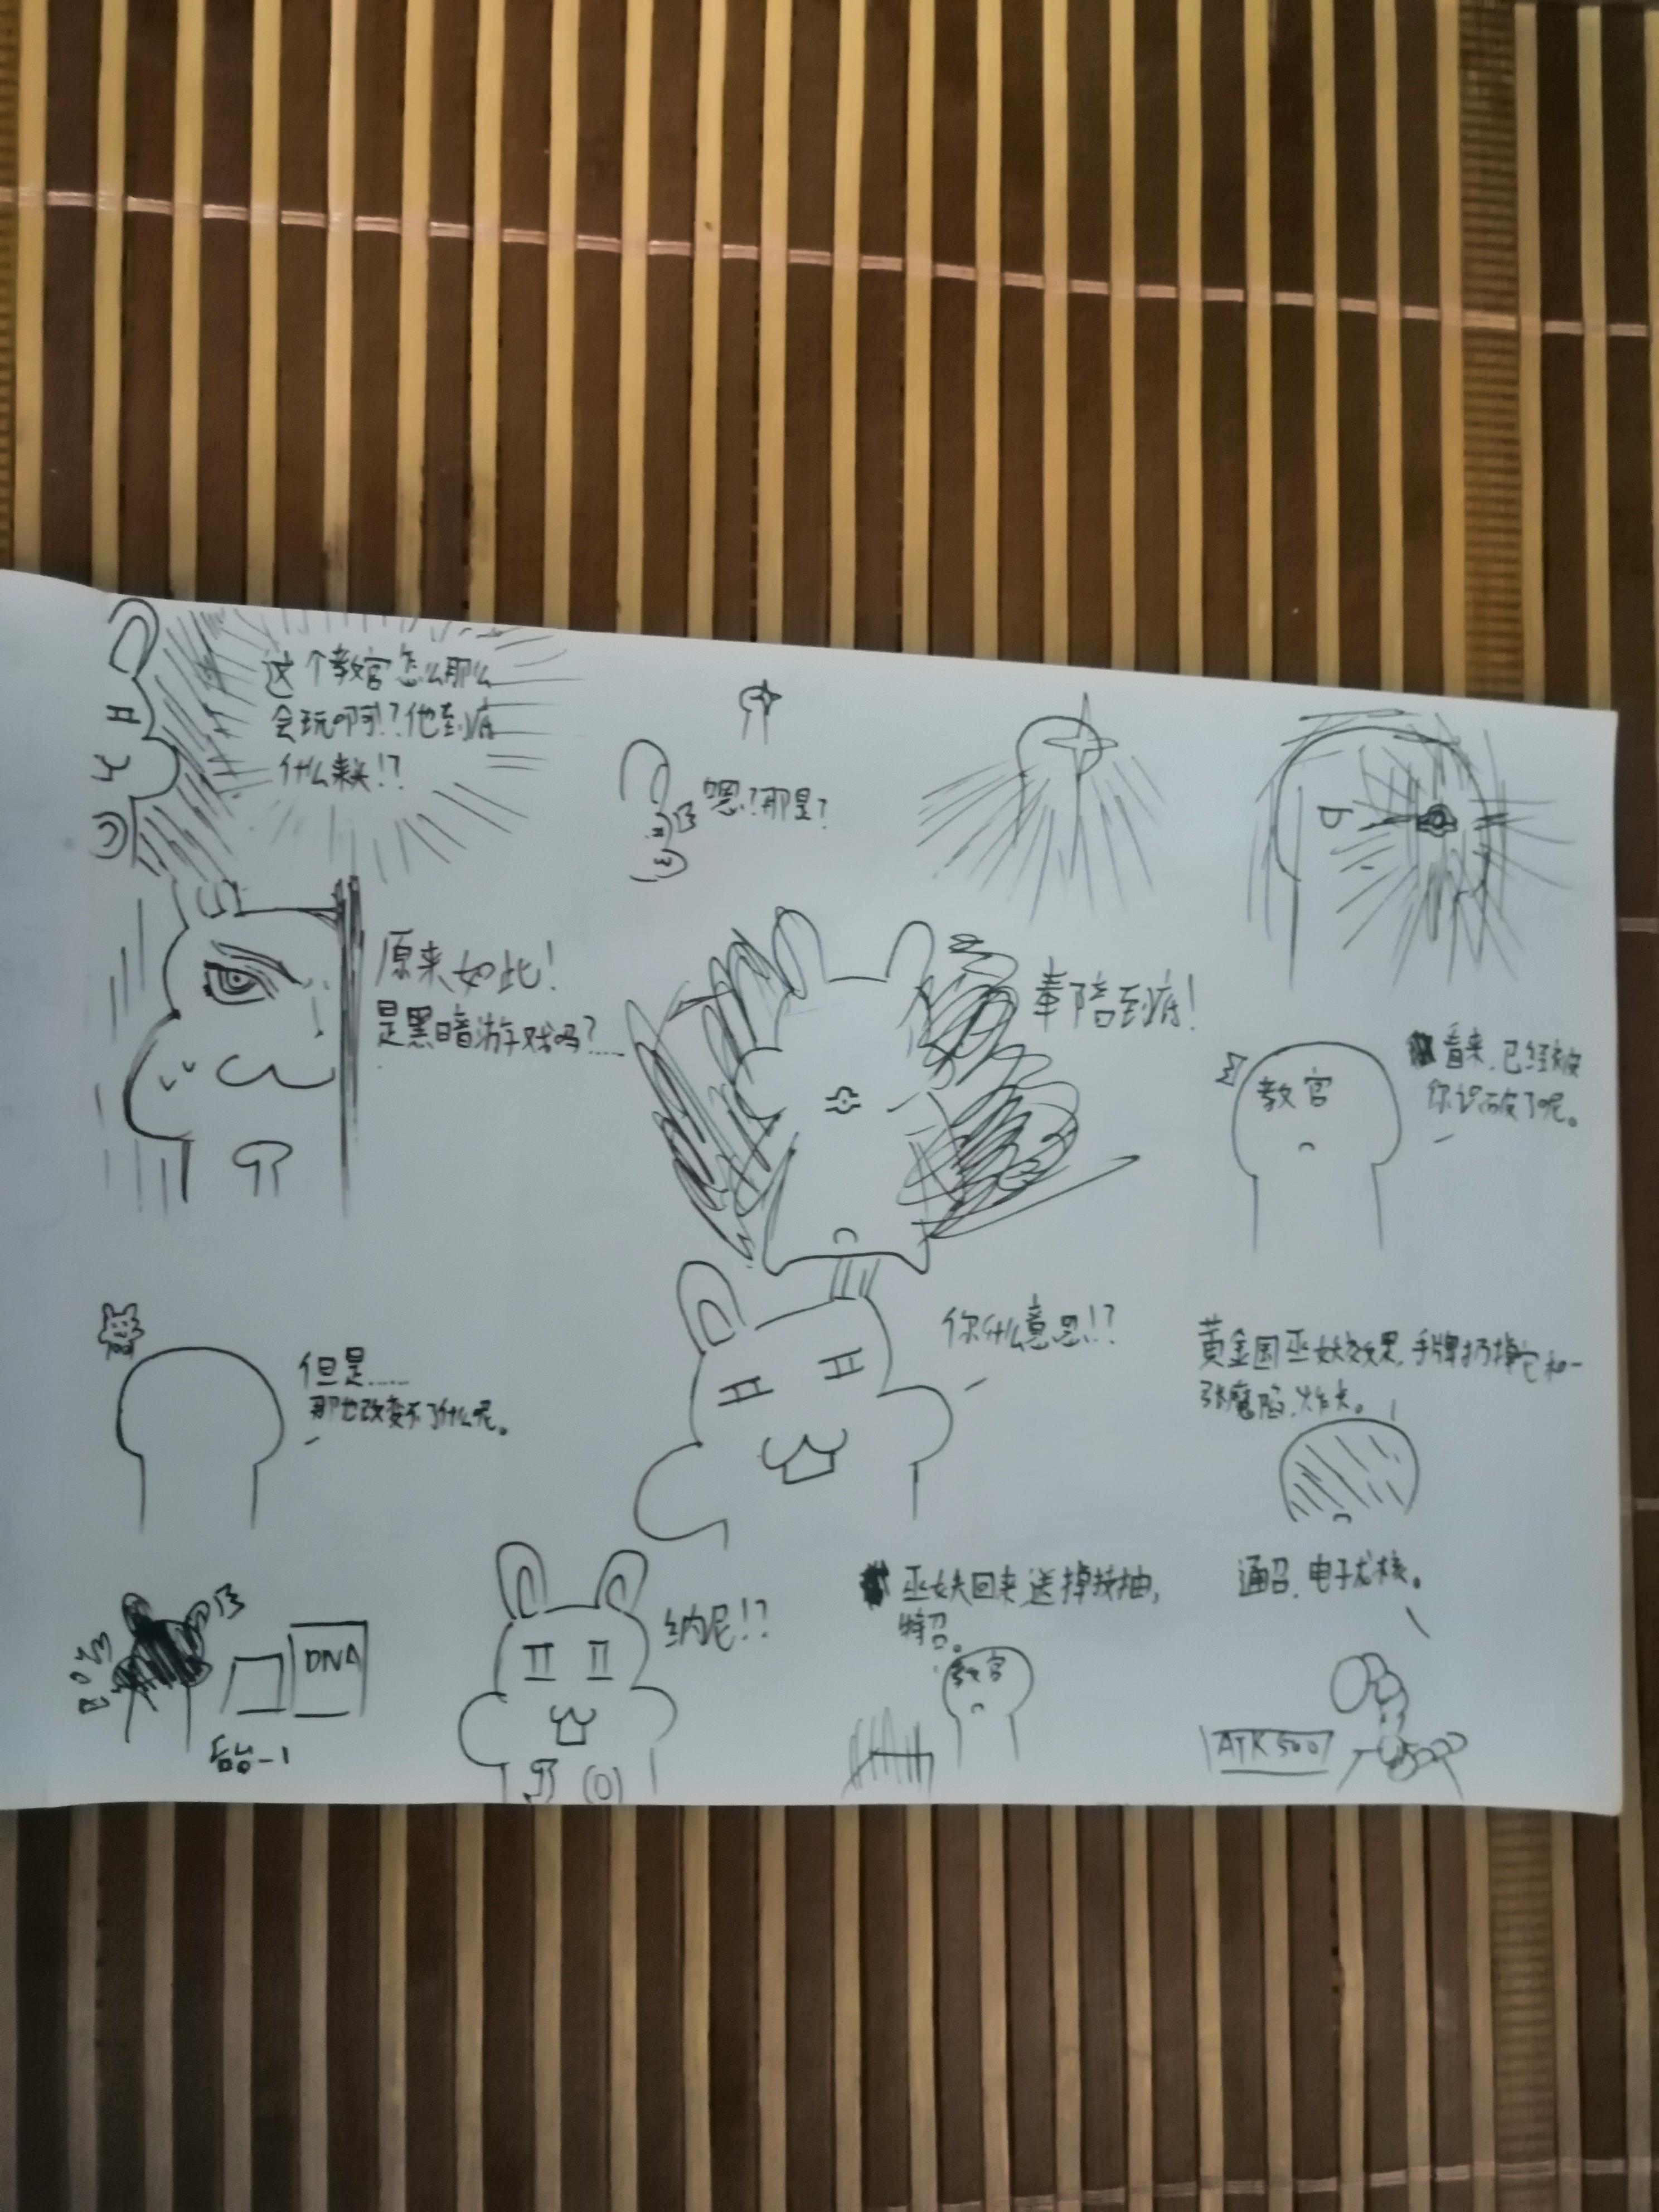 这个教官怎么那么
会玩啊!?他到底
什么来头!?
嗯?那是?
原来如此!
是黑暗游戏吗?……
奉陪到底!
教官
看来,已经被
你识破了呢。
但是……
那也改变不了什么呢。
你什么意思!?
黄金国巫妖效果,手牌扔掉它和一
张魔陷,炸卡。
DNA
后台-1
纳尼!?
巫妖回来送掉接抽,
特召。
教官
通召,电子龙核。
ATK 500